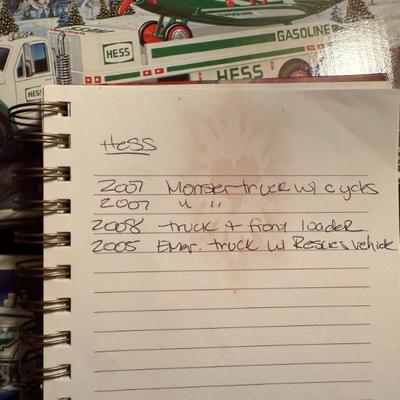 HESS
GASOLINE
HESS
HESS
Hess
2007 Monster truck w/ cycles
2007 " "
2008 truck + front loader
2005 Emer. truck w/ Rescue vehicle